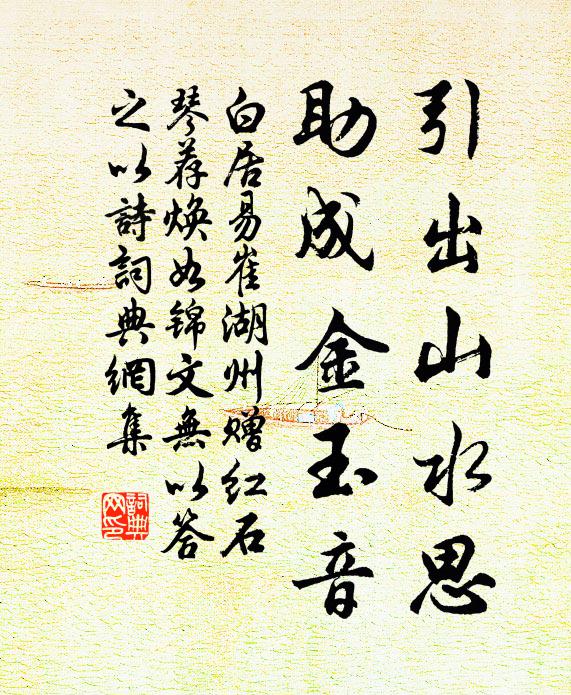 引出山水思
助成金玉音
白居易崔湖州赠红石
琴荐焕如锦文無以答
之以詩詞典網集
詞典
网印